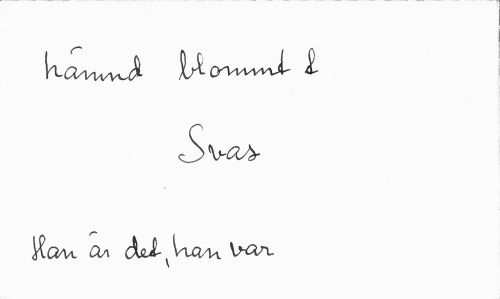 hämnd blommt d
Svas
Han är det, han var